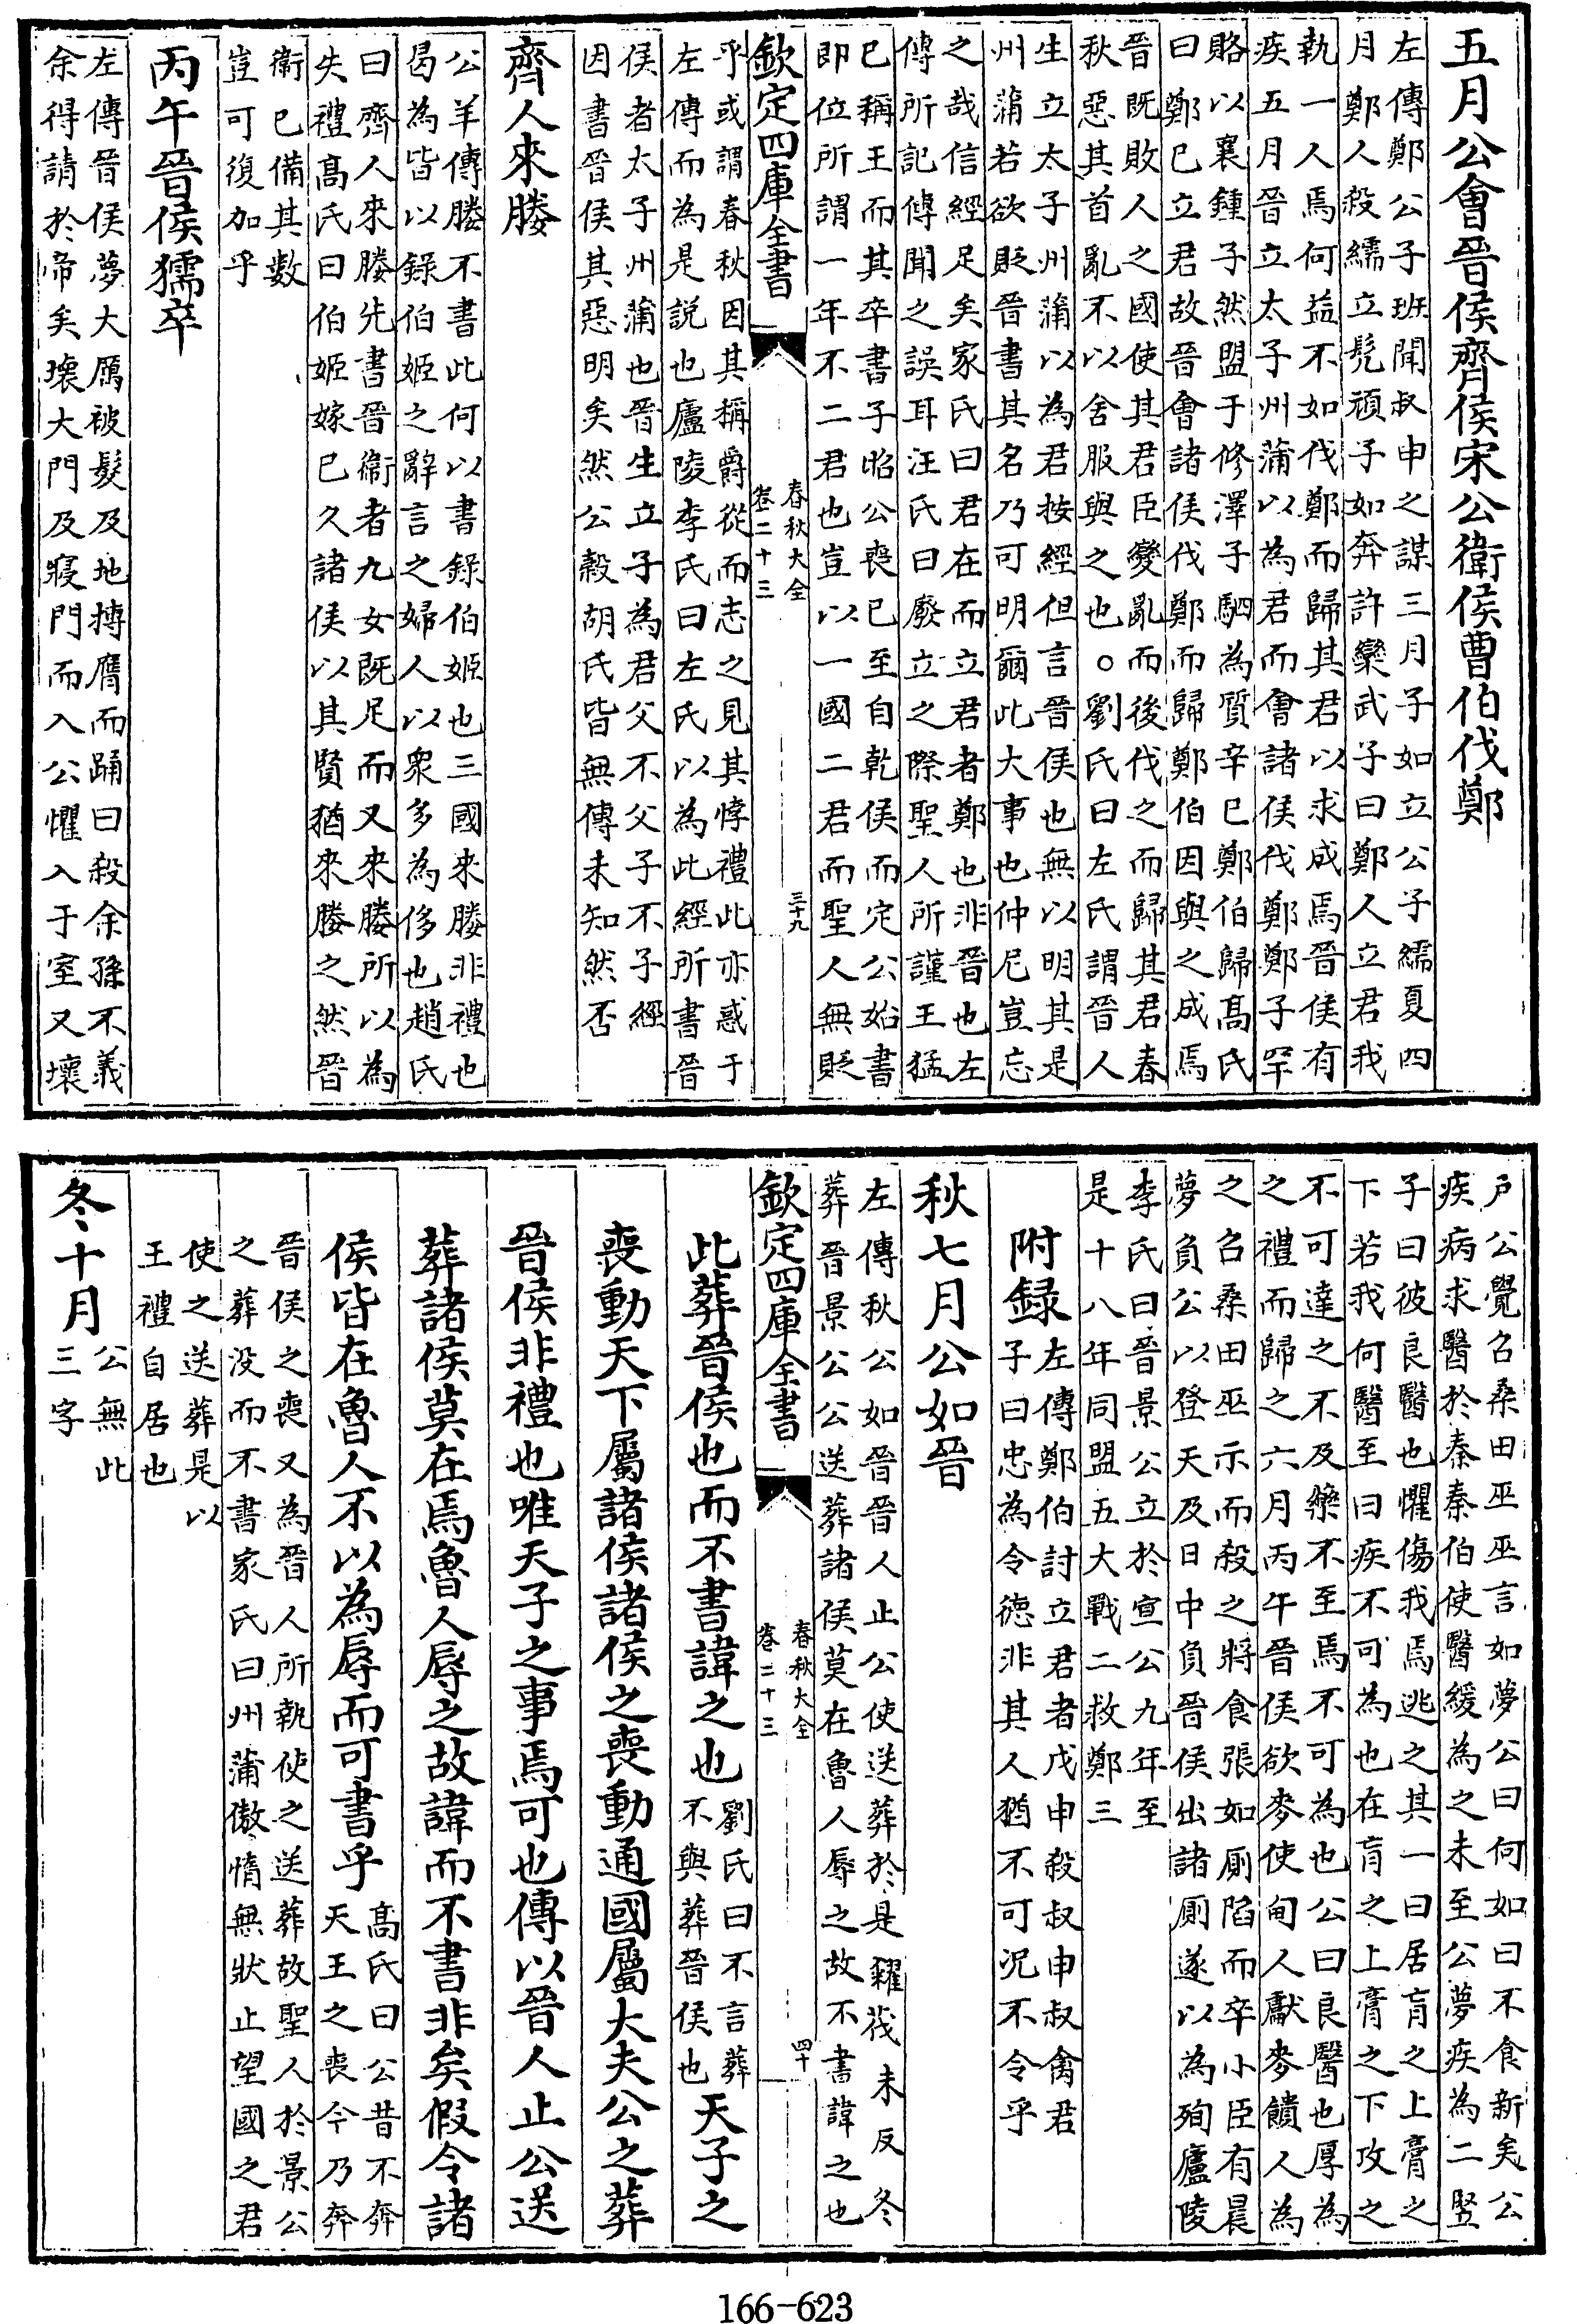 五月公會晉侯齊侯宋公衛侯曹伯伐鄭
左傳鄭公子班聞叔申之謀三月子如立公子繻夏四
月鄭人殺繻立髡頑子如奔許欒武子曰鄭人立君我
執一人焉何益不如伐鄭而歸其君以求成焉晉侯有
疾五月晉立太子州蒲以為君而會諸侯伐鄭鄭子罕
賂以襄鍾子然盟于修澤子駟為質辛巳鄭伯歸髙氏
曰鄭已立君故晉會諸侯伐鄭而歸鄭伯因與之成焉
晉既敗人之國使其君臣變亂而後伐之而歸其君春
秋惡其首亂不以舍服與之也○劉氏曰左氏謂晉人
生立太子州蒲以為君按經但言晉侯也無以明其是
州蒲若欲貶晉書其名乃可明爾此大事也仲尼豈忘
之哉信經足矣家氏曰君在而立君者鄭也非晉也左
傳所記傳聞之誤耳汪氏曰廢立之際聖人所謹王猛
已稱王而其卒書子昭公喪已至自乾侯而定公始書
即位所謂一年不二君也豈以一國二君而聖人無貶
欽定四庫全書
春秋大全
卷二十三
三十九
乎或謂春秋因其稱爵從而志之見其悖禮此亦惑于
左傳而為是説也廬陵李氏曰左氏以為此經所書晉
侯者太子州蒲也晉生立子為君父不父子不子經
因書晉侯其惡明矣然公穀胡氏皆無傳未知然否
齊人來媵
公羊傳媵不書此何以書錄伯姬也三國來媵非禮也
曷為皆以錄伯姬之辭言之婦人以衆多為侈也趙氏
曰齊人來媵先書晉衞者九女既足而又來媵所以為
失禮髙氏曰伯姬嫁已久諸侯以其賢猶來媵之然晉
衞已備其數
豈可復加乎
丙午晉侯獳卒
左傳晉侯夢大厲被髮及地搏膺而踊曰殺余孫不義
余得請於帝矣壊大門及寢門而入公懼入于室又壊
戸公覺召桑田巫巫言如夢公曰何如曰不食新矣公
疾病求醫於秦秦伯使醫緩為之未至公夢疾為二竪
子曰彼良醫也懼傷我焉逃之其一曰居肓之上膏之
下若我何醫至曰疾不可為也在肓之上膏之下攻之
不可達之不及藥不至焉不可為也公曰良醫也厚為
之禮而歸之六月丙午晉侯欲麥使甸人獻麥饋人為
之召桑田巫示而殺之將食張如厠陷而卒小臣有晨
夢負公以登天及日中負晉侯出諸厠遂以為殉廬陵
李氏曰晉景公立於宣公九年至
是十八年同盟五大戰二救鄭三
附録
左傳鄭伯討立君者戊申殺叔申叔禽君
子曰忠為令徳非其人猶不可況不令乎
秋七月公如晉
左傳秋公如晉晉人止公使送葬於是糴茷未反冬
葬晉景公公送葬諸侯莫在魯人辱之故不書諱之也
欽定四庫全書
春秋大全
卷二十三
四十
此葬晉侯也而不書諱之也
劉氏曰不言葬
不與葬晉侯也
天子之
喪動天下屬諸侯諸侯之喪動通國屬大夫公之葬
晉侯非禮也唯天子之事焉可也傳以晉人止公送
葬諸侯莫在焉魯人辱之故諱而不書非矣假令諸
侯皆在魯人不以為辱而可書乎
髙氏曰公昔不奔
天王之喪今乃奔
晉侯之喪又為晉人所執使之送葬故聖人於景公
之葬没而不書家氏曰州蒲傲惰無狀止望國之君
使之送葬是以
王禮自居也
冬十月
公無此
三字
166-623